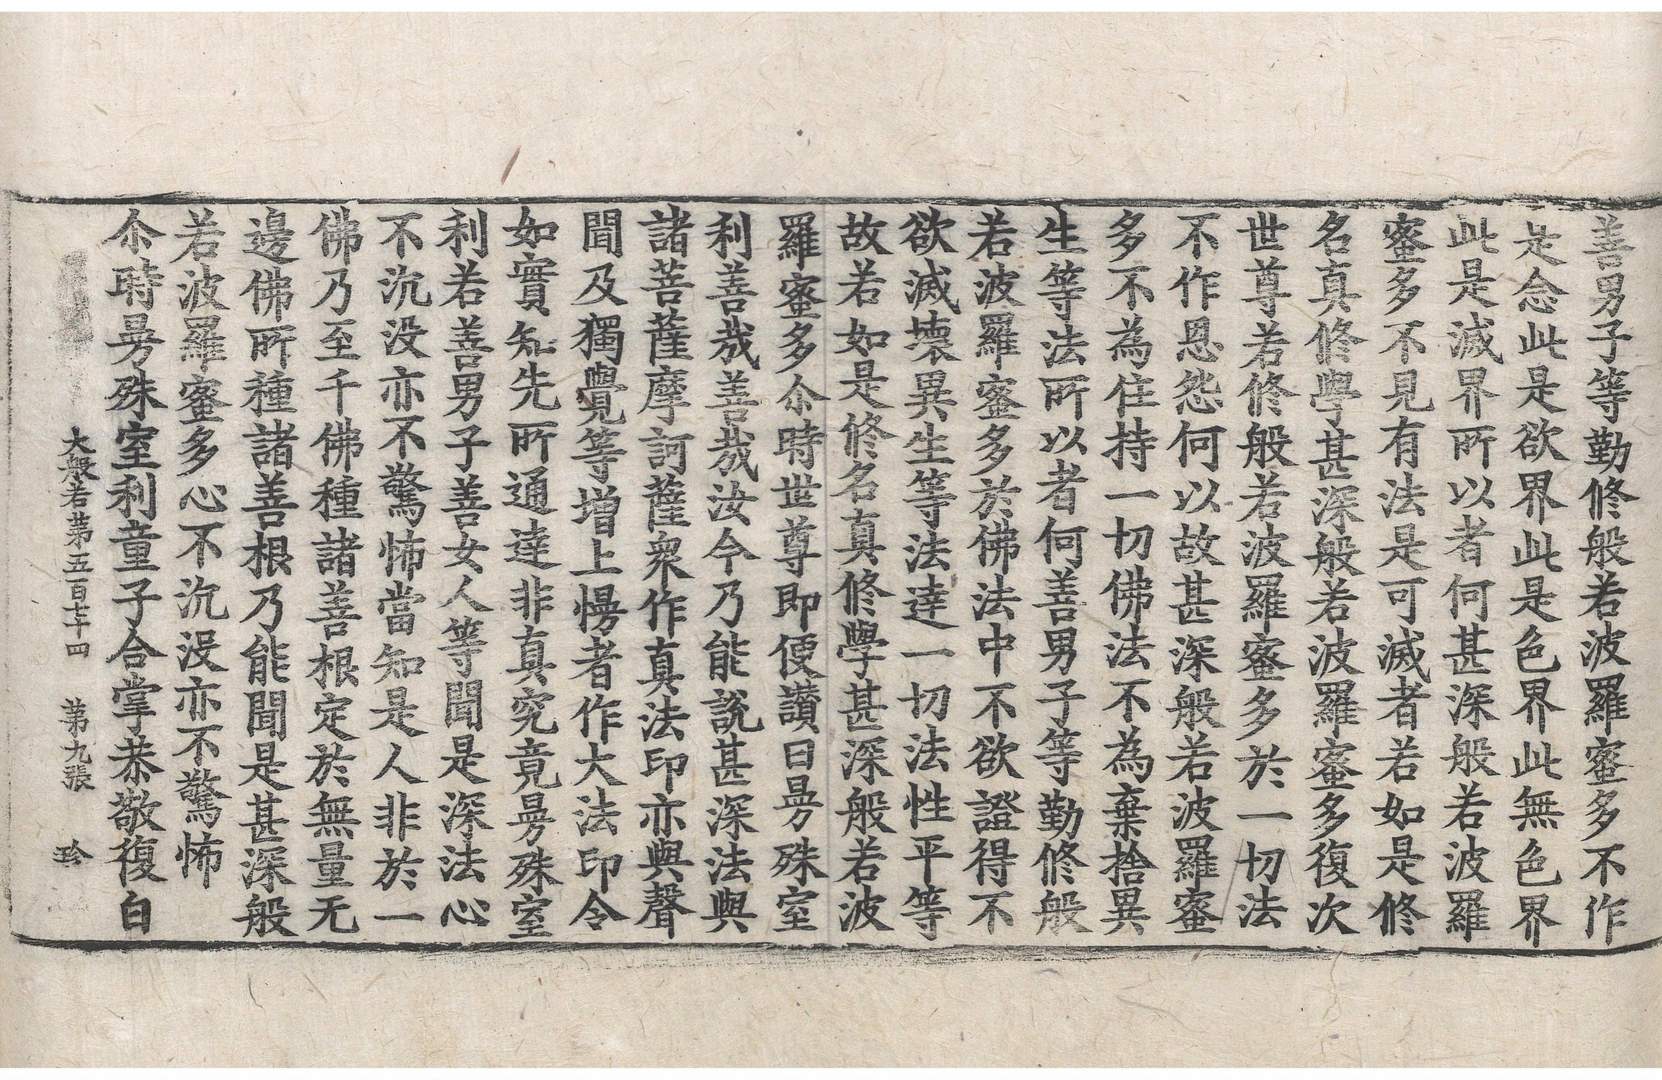 善男子等勤修般若波羅蜜多不作
是念此是欲界此是色界此無色界
此是滅界所以者何甚深般若波羅
蜜多不見有法是可滅者若如是修
名真修學甚深般若波羅蜜多復次
世尊若修般若波羅蜜多於一切法
不作恩怨何以故甚深般若波羅蜜
多不為住持一切佛法不為棄捨異
生等法所以者何善男子等勤修般
若波羅蜜多於佛法中不欲證得不
欲滅壞異生等法達一切法性平等
故若如是修名真修學甚深般若波
羅蜜多尒時世尊即便讚曰曼殊室
利善哉善哉汝今乃能說甚深法與
諸菩薩摩訶薩衆作真法印亦與聲
聞及獨覺等增上慢者作大法印令
如實知先所通達非真究竟曼殊室
利若善男子善女人等聞是深法心
不沉没亦不驚怖當知是人非於一
佛乃至千佛種諸善根定於無量无
邊佛所種諸善根乃能聞是甚深般
若波羅蜜多心不沉没亦不驚怖
尒時曼殊室利童子合掌恭敬復白
大般若第五百七十四 第九張 珍